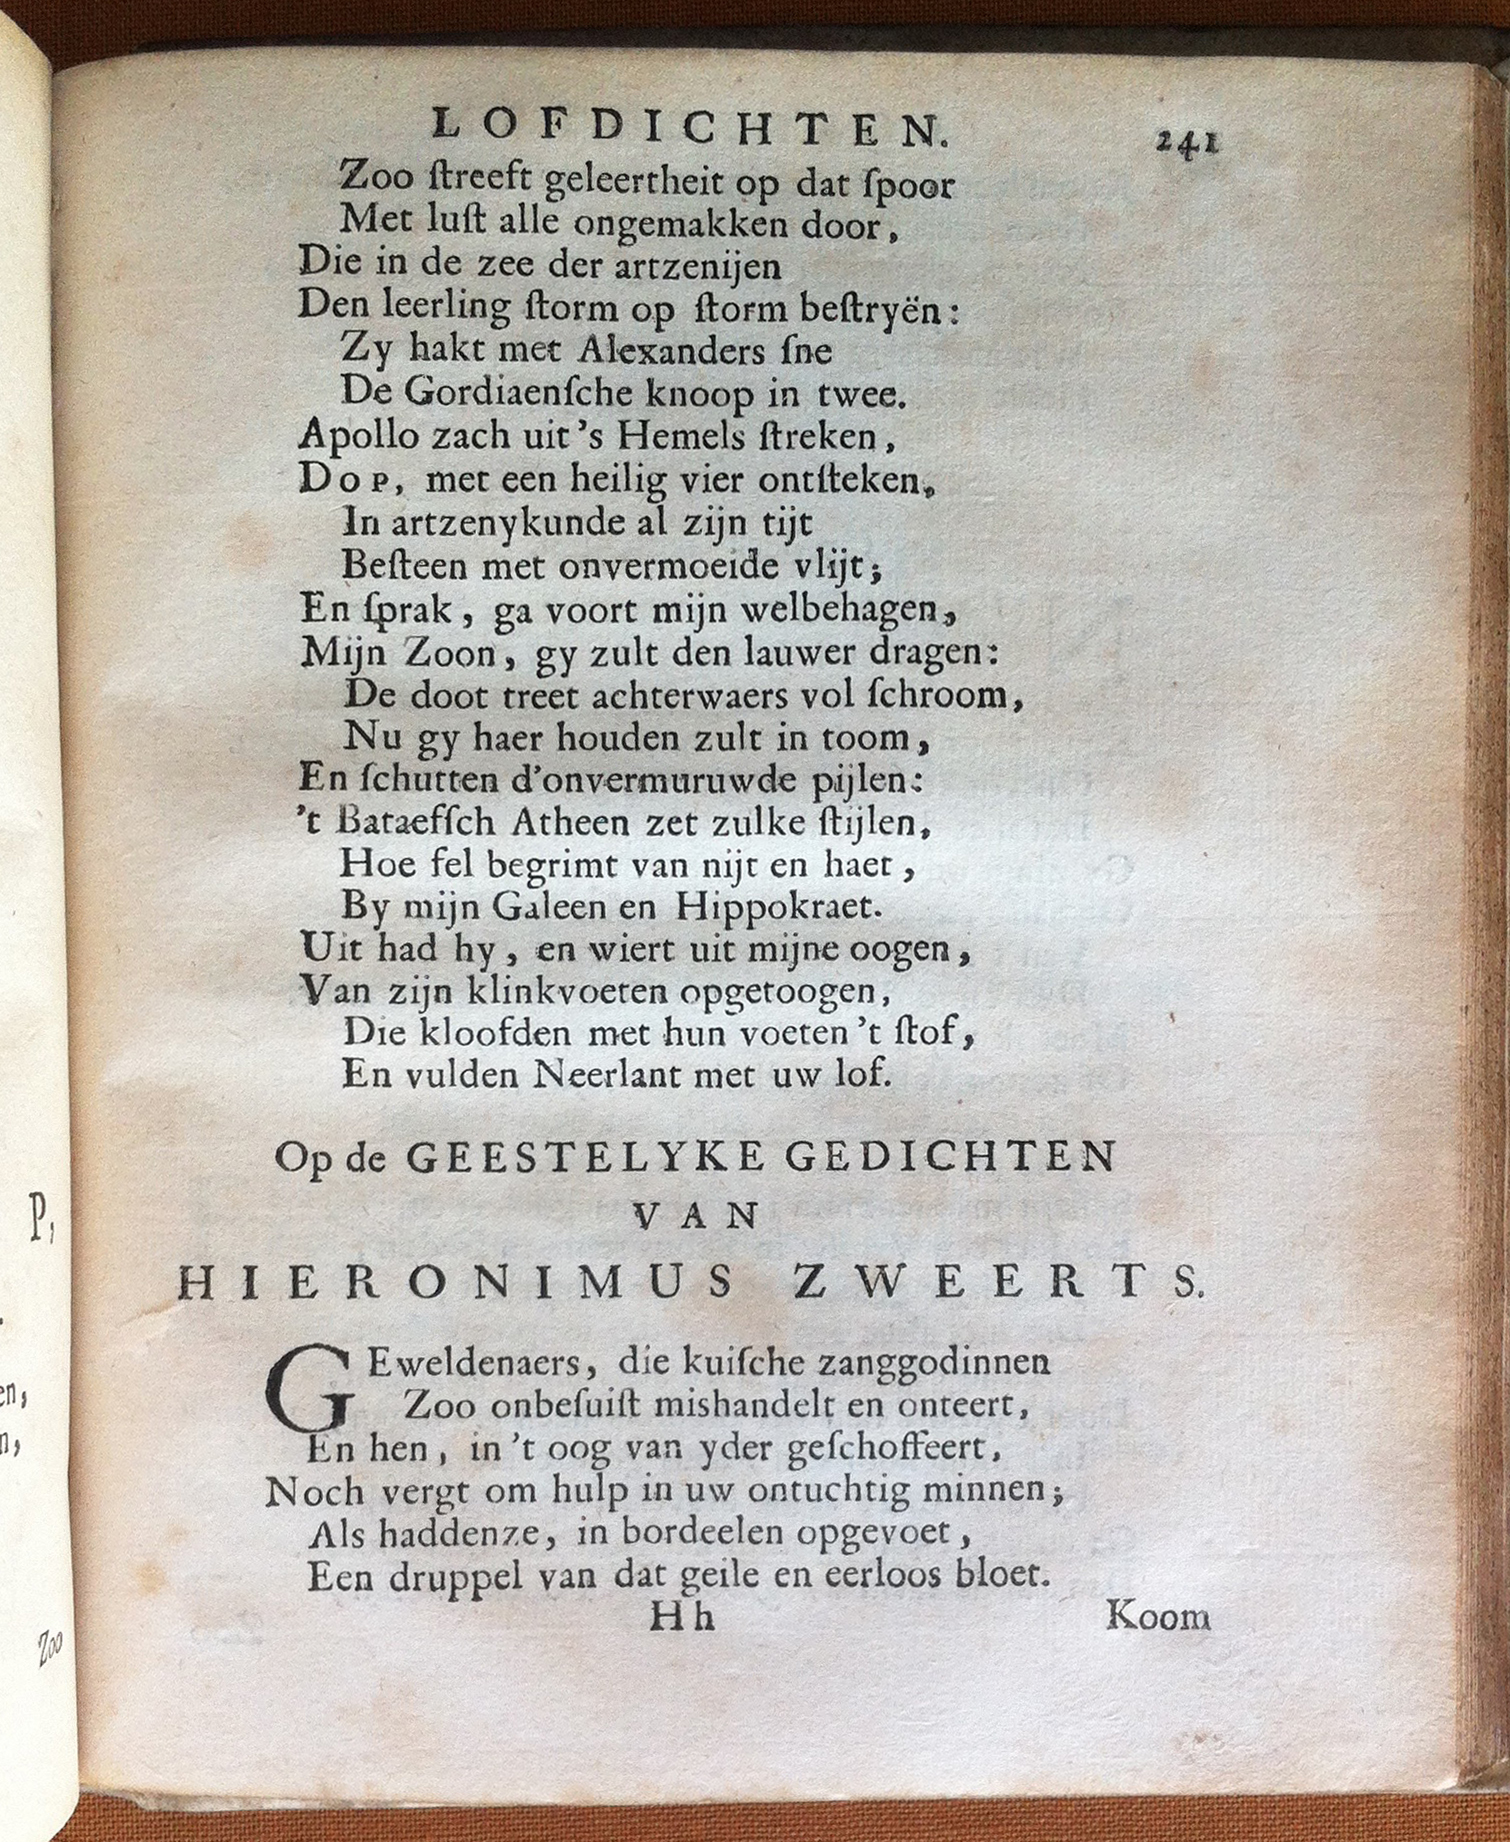 LOFDICHTEN. 241
Zoo ſtreeft geleertheit op dat ſpoor
Met luſt alle ongemakken door,
Die in de zee der artzenijen
Den leerling ſtorm op ſtorm beſtryën:
Zy hakt met Alexanders ſne
De Gordiaenſche knoop in twee.
Apollo zach uit 's Hemels ſtreken,
DOP, met een heilig vier ontſteken,
In artzenykunde al zijn tijt
Beſteen met onvermoeide vlijt;
En ſprak, ga voort mijn welbehagen,
Mijn Zoon, gy zult den lauwer dragen:
De doot treet achterwaers vol ſchroom,
Nu gy haer houden zult in toom,
En ſchutten d'onvermuruwde pijlen:
't Bataefſch Atheen zet zulke ſtijlen,
Hoe fel begrimt van nijt en haet,
By mijn Galeen en Hippokraet.
Uit had hy, en wiert uit mijne oogen,
Van zijn klinkvoeten opgetoogen,
Die kloofden met hun voeten 't ſtof,
En vulden Neerlant met uw lof.
Op de GEESTELYKE GEDICHTEN
VAN
HIERONIMUS ZWEERTS.
GEweldenaers, die kuiſche zanggodinnen
Zoo onbeſuiſt mishandelt en onteert,
En hen, in 't oog van yder geſchoffeert,
Noch vergt om hulp in uw ontuchtig minnen;
Als haddenze, in bordeelen opgevoet,
Een druppel van dat geile en eerloos bloet.
Hh Koom
P,
en,
n,
Zoo